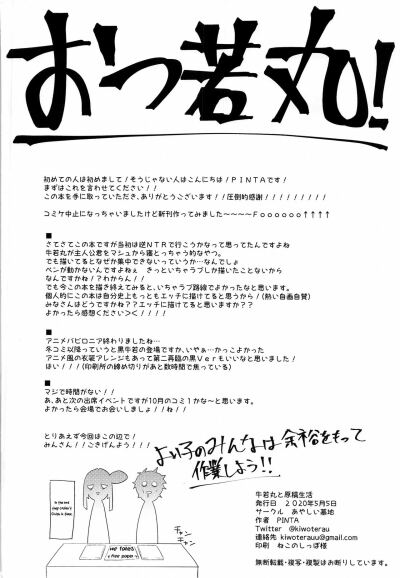 おつ若丸!
初めての人は初めまして！そうじゃない人はこんにちは！PINTAです！
まずはこれを言わせてください！！
この本を手に取っていただき、ありがとうございます！圧倒的感謝！！！！！！！！！
コミケ中止になっちゃいましたけど新刊作ってみました～～～～Foooooo↑↑↑↑
■
さてさてこの本ですが当初は逆NTRで行こうかなって思ってたんですよね
牛若丸が主人公君をマシュから寝とっちゃう的なやつ。
でも描いてるとなぜか集中できないっていうか…なんでしょ
ペンが動かないんですよねぇ　きっといちゃラブしか描いたことないから
なんでしょうね？わからん！！
でも今この本を描き終えてみると、いちゃラブ路線でよかったなと思います。
個人的にこの本は自分史上もっともエッチに描けてると思うから！(熱い自画自賛)
みなさんはどうですかね？？エッチに描けてると思いますか？？
よかったら感想ください＞＜！！！！
■
アニメバビロニア終わりましたね…
冬コミ以降っていうと黒牛若の登場ですか、いやぁ…かっこよかった
アニメ風の衣装アレンジもあって第二再臨の黒Verもいいなと思いました！
ほい！！！(印刷所の締め切りがあと数時間で焦っている)
■
マジで時間がない！！
あ、あと次の出席イベントですが10月のコミ1かな～と思います。
よかったら会場でお会いしましょ！！ね！！
とりあえず今回はこの辺で！
みんさん！！ごきげんよう！！！
よい子のみんなは余裕をもって
作業しよう!!
チャン
チャン
free paper
牛若丸と原稿生活
発行日　2020年5月5日
サークル　あやしい墓地
作者　PINTA
Twitter　@kiwoterau
連絡先　kiwoterauu@gmail.com
印刷　ねこのしっぽ様
無断転載・複写・複製はお断りしています。